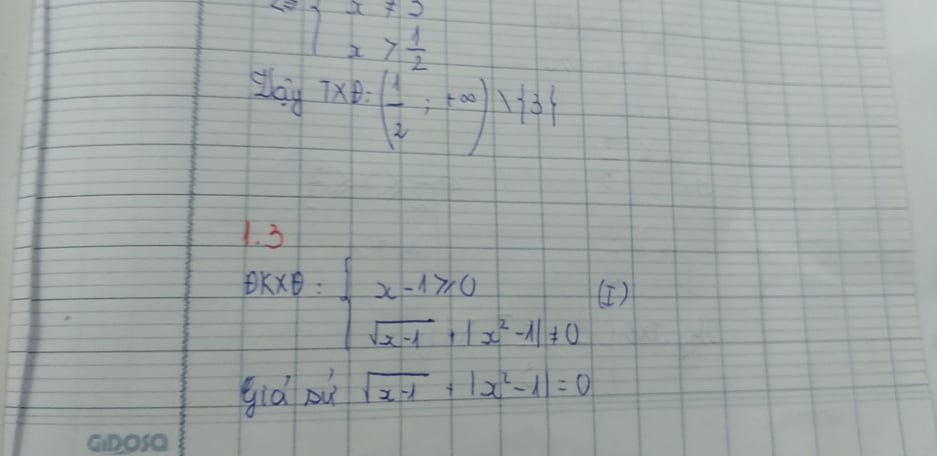 <=> { x ≠ 3
x > 1/2
Vậy TXĐ: (1/2 ; +∞) \ {3}
1.3
ĐKXĐ : { x - 1 ≥ 0 (I)
√x-1 + |x² - 1| ≠ 0
Giả sử √x-1 + |x² - 1| = 0
GIDOSO